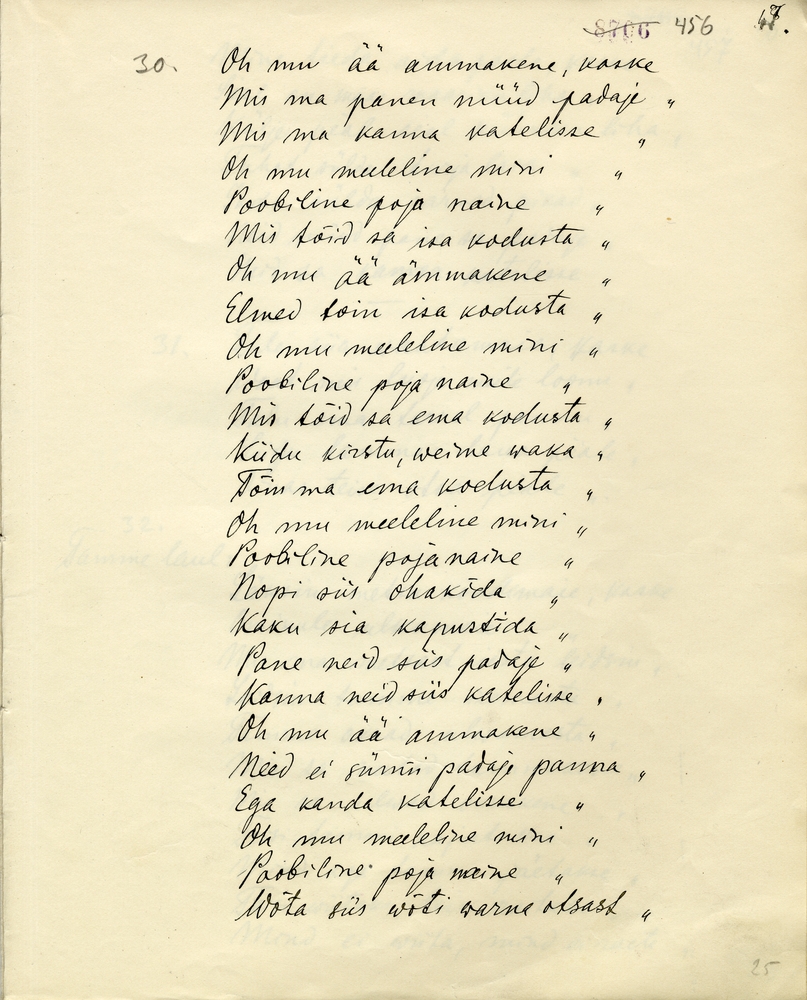 8706 456
30. Oh mu ää ämmakene, kaske
Mis ma panen nüüd padaje "
Mis ma kanna katelisse "
Oh mu meeleline mini "
Poobiline poja naine "
Mis tõid sa isa kodusta "
Oh mu ää ämmakene "
Elmed toin isa kodusta "
Oh mu meeleline mini "
Poobiline poja naine "
Mis tõid sa ema kodusta "
Kiidu kirstu, weime waka "
Tõin ma ema kodusta "
Oh mu meeleline mini "
Poobiline poja naine "
Nopi siis ohakida "
Kaku sia kapustida "
Pane neid siis padaje "
Kanna neid siis katelisse "
Oh mu ää ämmakene "
Need ei sünni padaje panna "
Ega kanda katelisse "
Oh mu meeleline mini "
Poobiline poja naine "
Wõta siis wõti warna otsast "
25